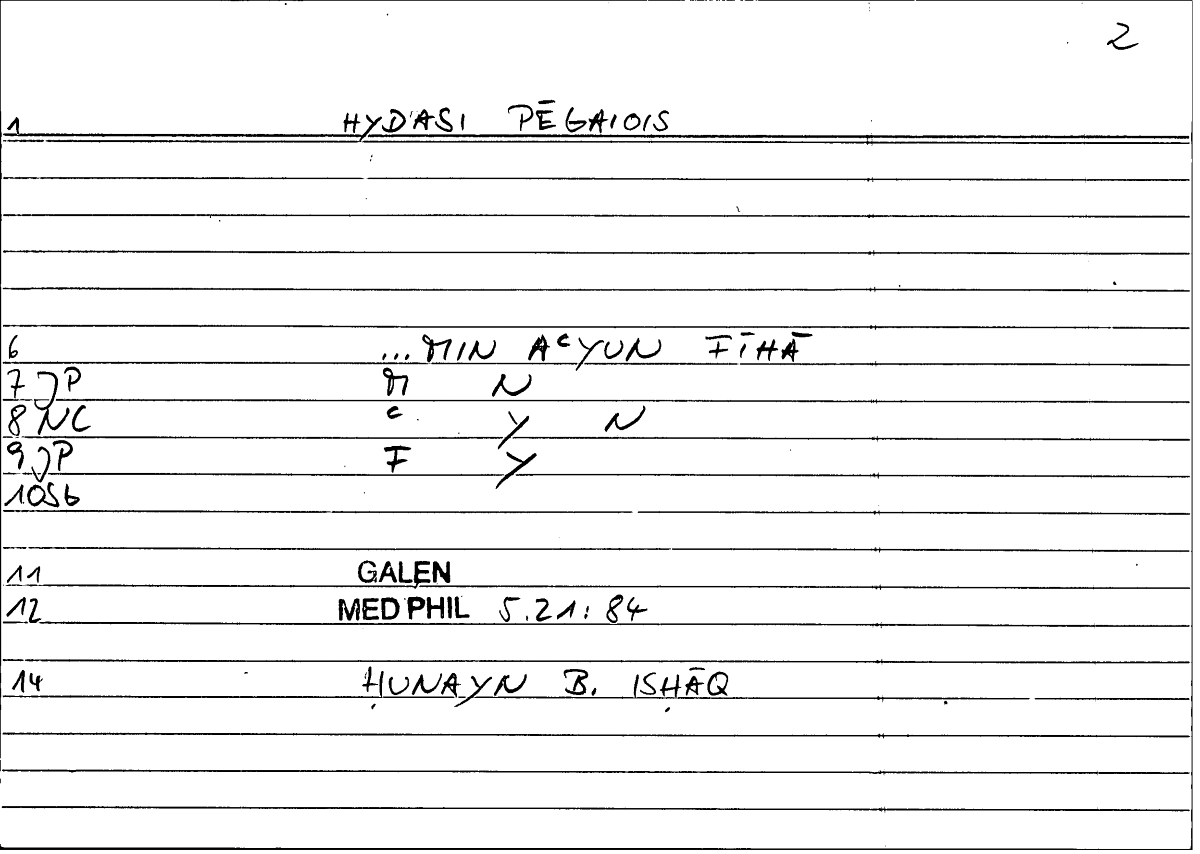 2
1 HYDASI PĒGAIOIS
6 ...MIN AᶜYUN FĪHĀ
7 JP M N
8 NC ᶜ Y N
9 JP F Y
10 Sb
11 GALEN
12 MED PHIL 5.21: 84
14 ḤUNAYN B. ISḤĀQ